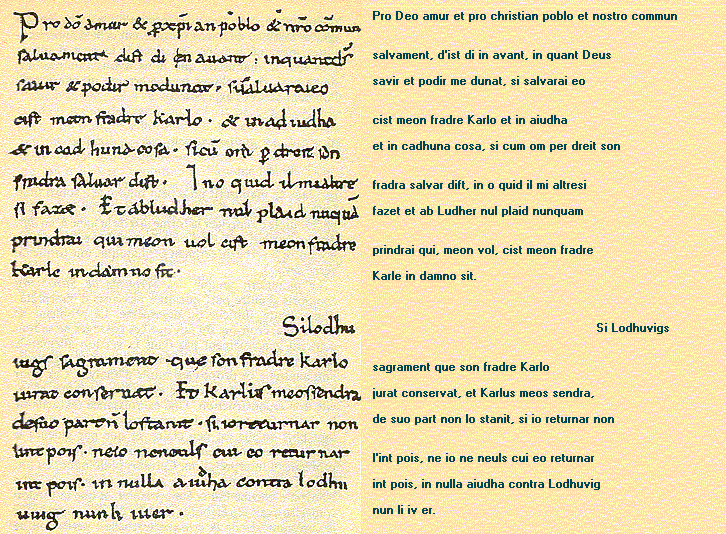 Pro dō amur & p xp̄ian poblo & nr̄o cōmun
saluament. dist di en auant. inquantdš
sauir & podir medunat. sisaluaraieo
cist meon fradre karlo. & in adiudha
& in cad huna cosa. sicū om p dreit son
fradra saluar dist. Ino quid il mialtre
si fazet. Et abludher nul plaid nūquā
prindrai qui meon uol cist meon fradre
karle in damno sit.
Silodhu
uigs sagrament. que son fradre karlo
iurat conseruat. Et karlus meossendra
desuo partn̄ lostanit. si ioreturnar non
lint pois. neio neneuls cui eo returnar
int pois. in nulla aiudha contra lodhu
uuig nunli iuer.
Pro Deo amur et pro christian poblo et nostro commun
salvament, d'ist di in avant, in quant Deus
savir et podir me dunat, si salvarai eo
cist meon fradre Karlo et in aiudha
et in cadhuna cosa, si cum om per dreit son
fradra salvar dift, in o quid il mi altresi
fazet et ab Ludher nul plaid nunquam
prindrai qui, meon vol, cist meon fradre
Karle in damno sit.
Si Lodhuvigs
sagrament que son fradre Karlo
jurat conservat, et Karlus meos sendra,
de suo part non lo stanit, si io returnar non
l'int pois, ne io ne neuls cui eo returnar
int pois, in nulla aiudha contra Lodhuvig
nun li iv er.